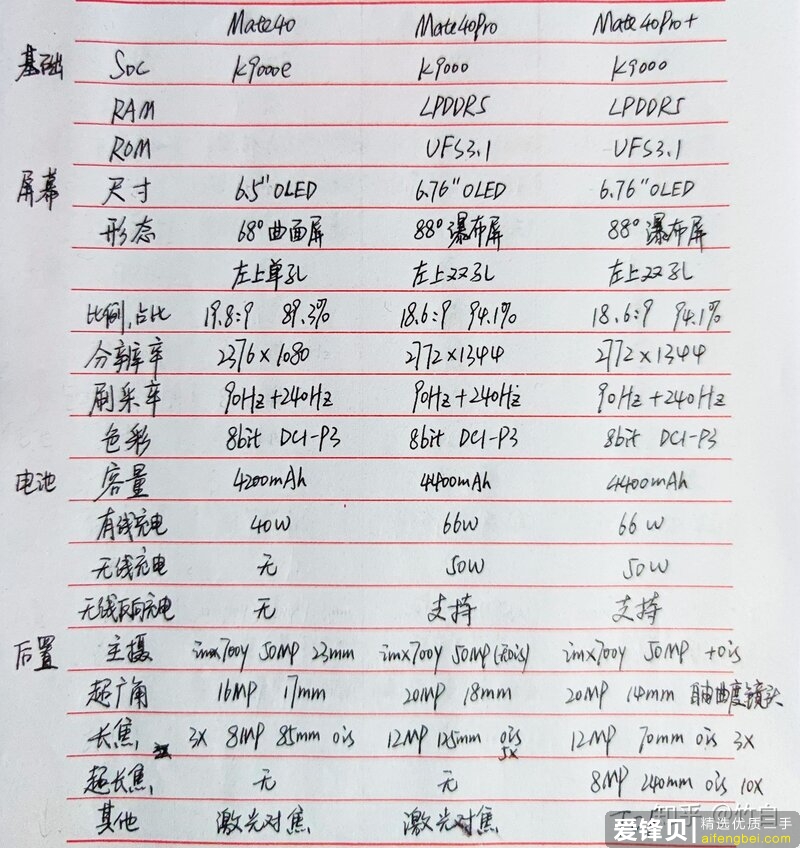 Mate40 Mate40Pro Mate40Pro+
基础 SOC K9000e K9000 K9000
RAM LPDDR5 LPDDR5
ROM UFS3.1 UFS3.1
屏幕 尺寸 6.5"OLED 6.76"OLED 6.76"OLED
形态 68°曲面屏 88°瀑布屏 88°瀑布屏
左上单孔 左上双孔 左上双孔
比例,占比 19.8:9 89.3% 18.6:9 94.1% 18.6:9 94.1%
分辨率 2376×1080 2772×1344 2772×1344
刷采率 90Hz+240Hz 90Hz+240Hz 90Hz+240Hz
色彩 8bit DCI-P3 8bit DCI-P3 8bit DCI-P3
电池 容量 4200mAh 4400mAh 4400mAh
有线充电 40W 66W 66W
无线充电 无 50W 50W
无线反向充电 无 支持 支持
后置 主摄 imx700y 50MP 23mm imx700y 50MP(无ois) imx700y 50MP +ois
超广角 16MP 17mm 20MP 18mm 20MP 14mm 自由曲度镜头
长焦 3X 8MP 85mm ois 12MP 125mm ois 5X 12MP 70mm ois 3X
超长焦 无 无 8MP 240mm ois 10X
其他 激光对焦 激光对焦
知乎 @竹白
爱锋贝 精选优质二手
aifengbei.com